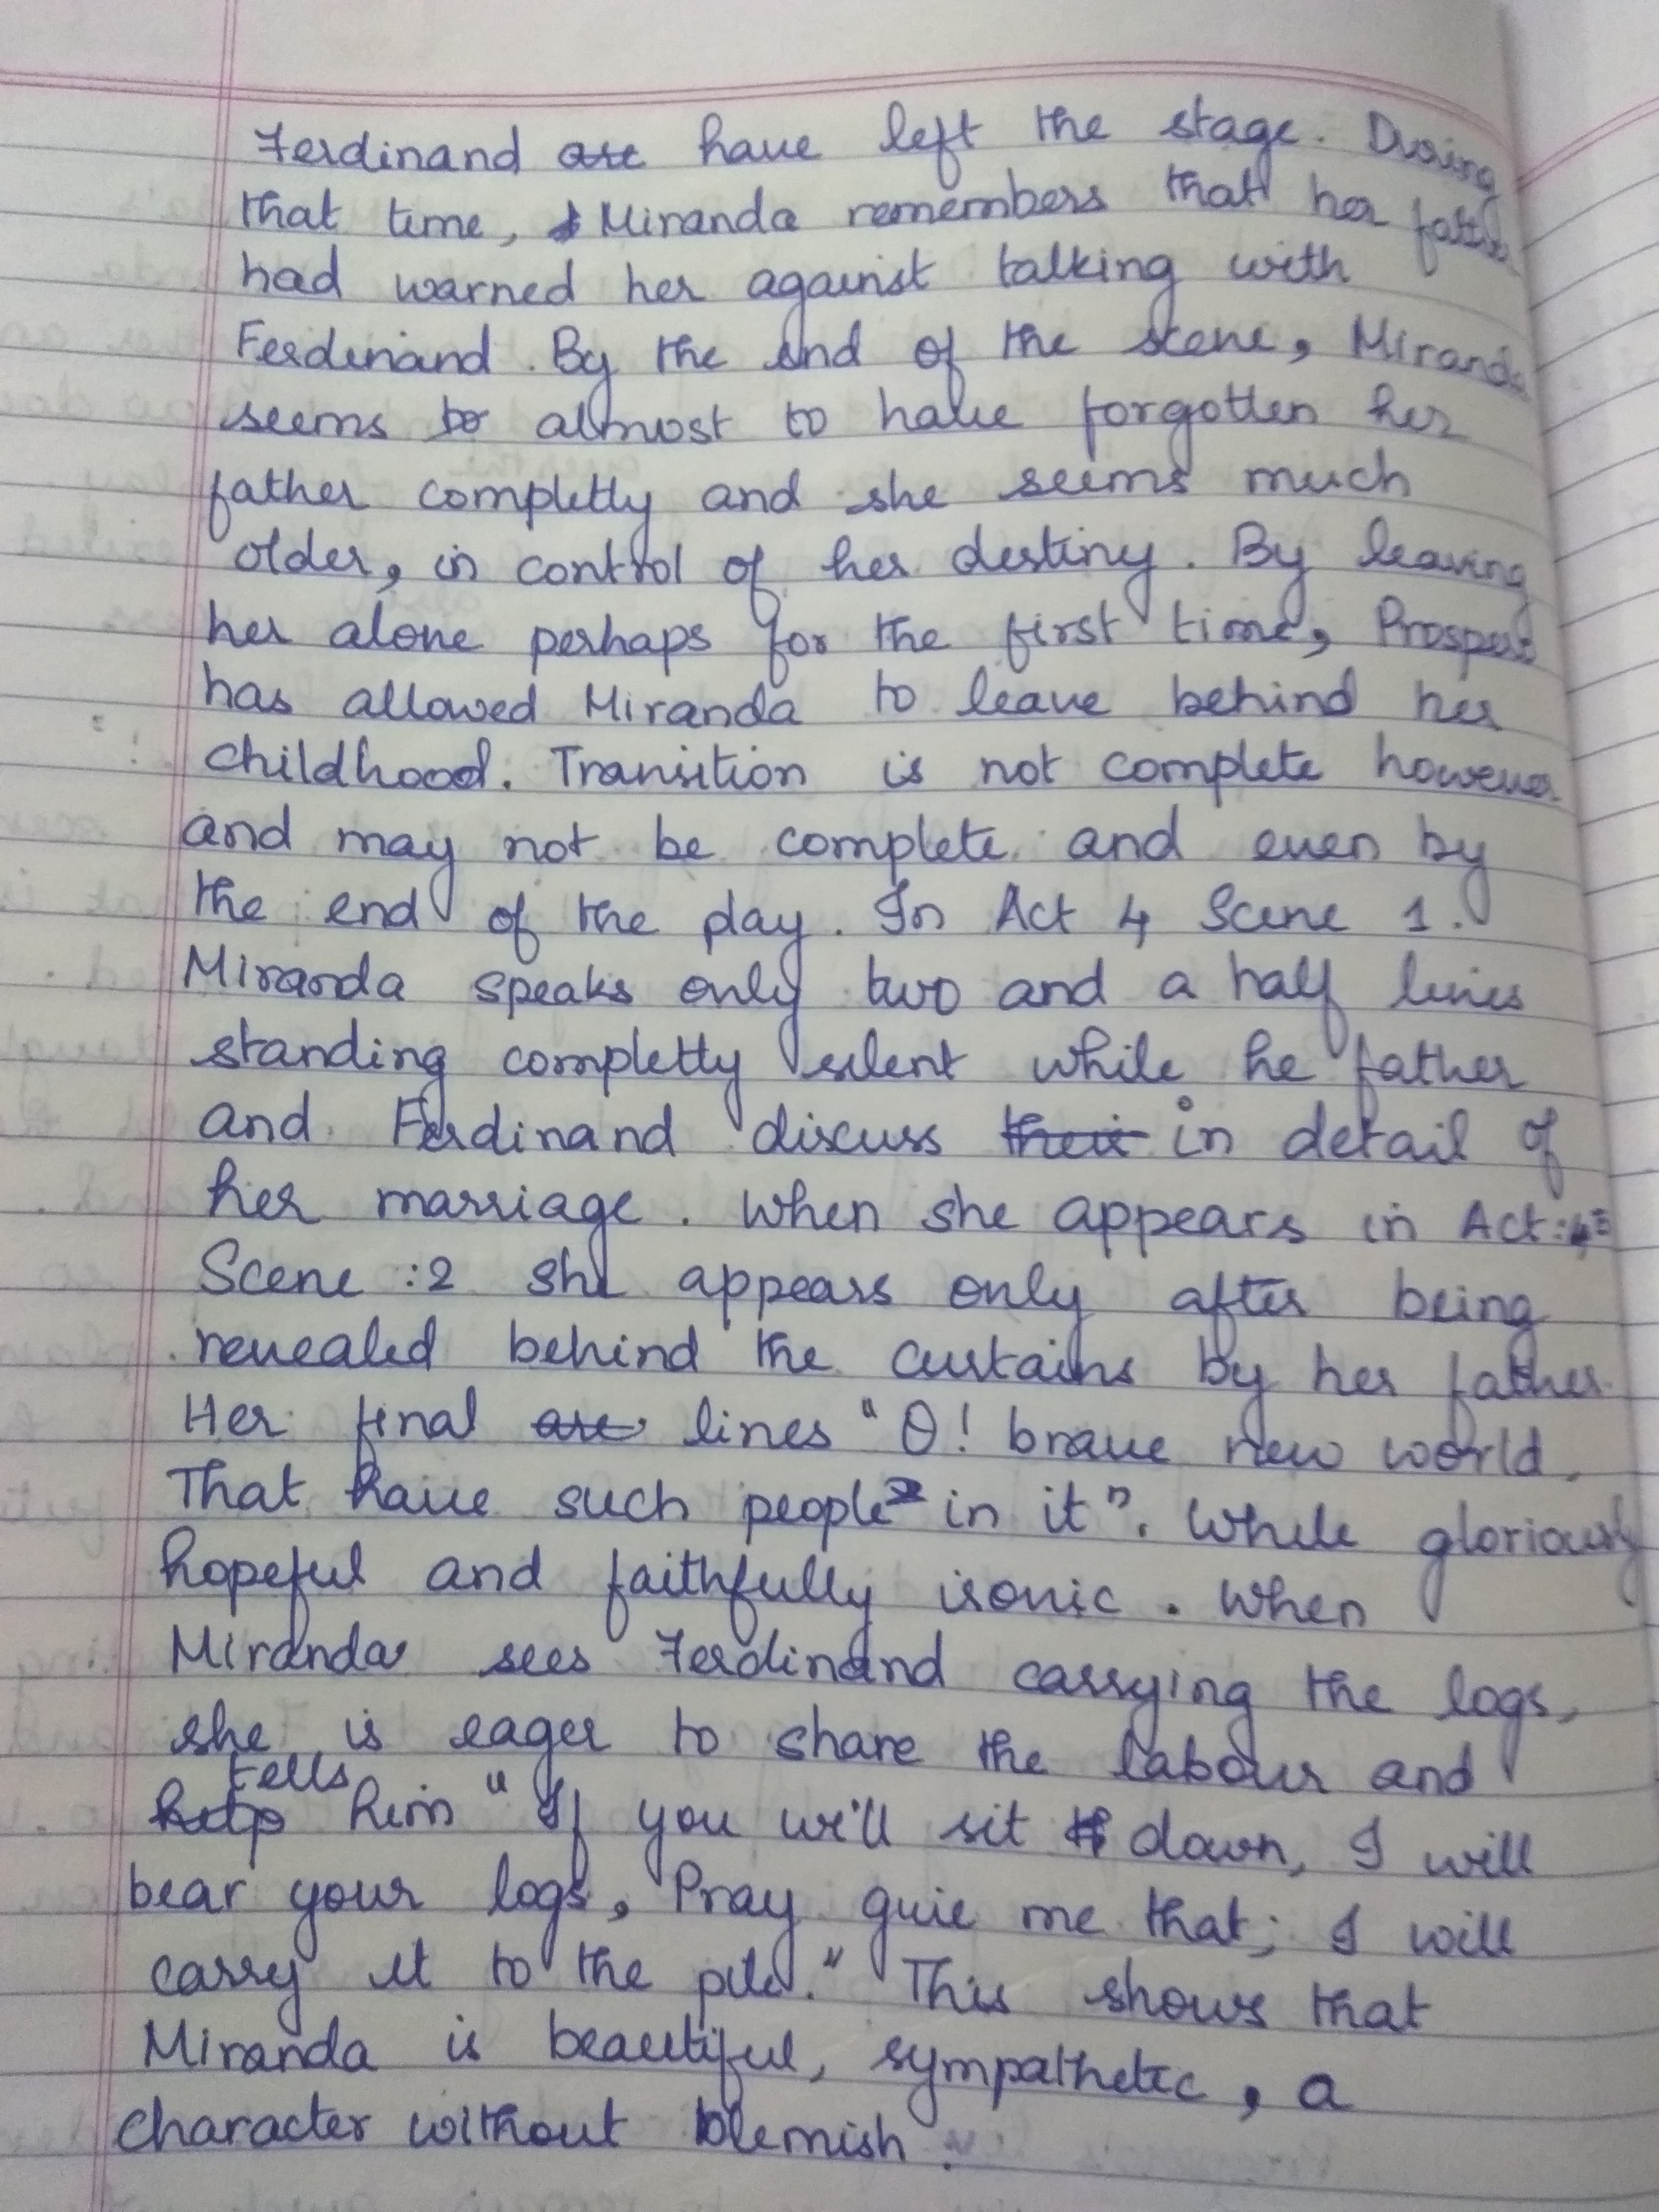 Ferdinand are have left the stage. During
that time, Miranda remembers that her father
had warned her against talking with
Ferdinand. By the end of the scene, Miranda
seems to almost to have forgotten her
father completly and she seems much
older, in control of her destiny. By leaving
her alone perhaps for the first time, Prospero
has allowed Miranda to leave behind her
childhood. Transition is not complete however
and may not be complete and even by
the end of the day. In Act 4 Scene 1.
Miranda speaks only two and a half lines
standing completly silent while he father
and Ferdinand discuss their in detail of
her marriage. When she appears in Act:
Scene :2 she appears only after being
revealed behind the curtains by her father.
Her final are lines "O! brave new world.
That have such people in it". While gloriously
hopeful and faithfully ironic. When
Miranda sees Ferdinand carrying the logs,
she is eager to share the labour and
tells him "If you we'll sit down, I will
bear your logs, Pray give me that; I will
carry it to the pile." This shows that
Miranda is beautiful, sympathetic, a
character without blemish.